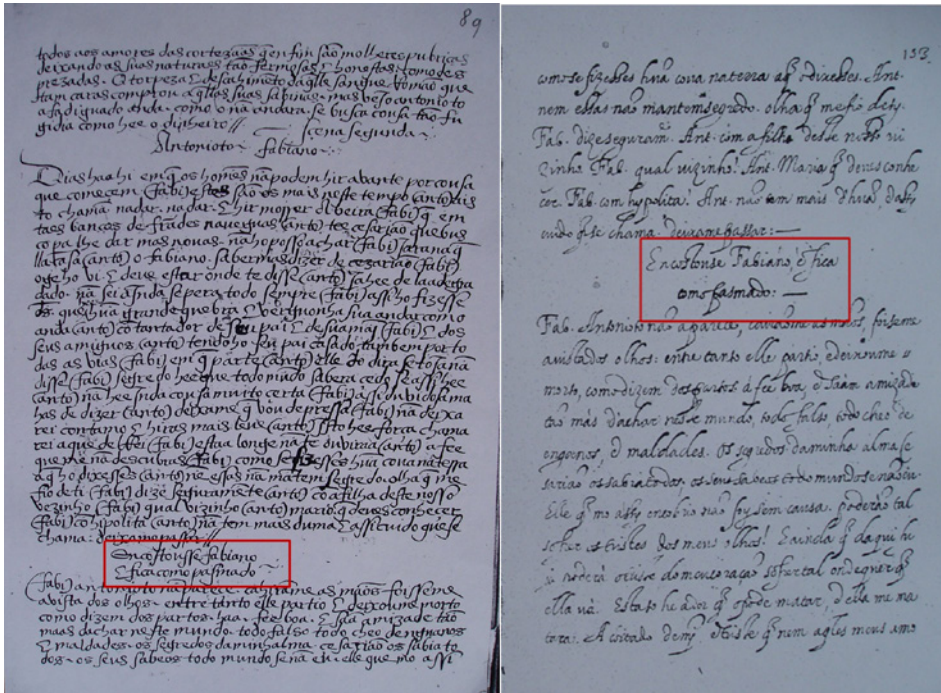 89
todos aos amores das cortezaãs q̃ en fim são molheres pubricas
deixando as suas naturaes tão fermosas Ɛ honestas, como des
prezadas. O torpeza Ɛ descahimẽto daq̃lle sangue Romão que
tam caras comprou aq̃llas suas sabinas. mas vejo antonioto
como o não andara. se busca cousa tão fu
gidia como hee o dinheiro //.
scena segunda
Antonioto fabiano
Dias haahi em q̃ os homẽs não podem hir avante por cousa
que comecem (fabi) estes são os mais neste tempo (anto) mais
to chamã nadar. nadar. Ɛ hir morrer á Ribeira (fabi) q̃ em
copa lhe dar mas novas. não ho posso achar (fabi)
llatasa (anto) o fabiano. saber mas dizer de cezarião (fabi)
oge ho vi. Ɛ deve estar onde te disse (anto) ja hee de laa degra
dado. não sei ainda se pera todo sempre (fabi) assi ho fizesse
ds. que hũa grande quebra Ɛ vergonha sua andar como
anda (anto) o contador de seu pai Ɛ de sua mai (fabi) Ɛ dos
seus amiguos (anto) tendo ho seu pai casado tambem por to
das as vias (fabi) em q̃ parte (anto) elle do dira se to já não
disse (fabi) segredo hee que todo mũdo sabera cedo se assi hee
(anto) não hee inda cousa muito certa (fabi) assi duvidosa ma
has de dizer (anto) deixame q̃ vou depressa (fabi) não deixa
rei contamo Ɛ hiras mais leve (anto) Isto hee força chama
rei aque del Rei (fabi) estaa longe não te ouviria (anto) a fee
que me não descubras (fabi) como se fizesses hũa cova na terra
a q̃ ho dixesses (anto) nẽ essas não mãtem segredo. olha q̃ me
fio de ti (fabi) dize seguramẽte (anto) cõ a filha deste nosso
vezinho (fabi) qual vizinho (anto) mario q̃ deves conhecer
(fabi) cõ hypolita (anto) não tem mais duma Ɛ assi cuido que se
chama: deixame passar //
Encostousse fabiano
Ɛ fica como pasmado
(fabi) antonioto não parece. cahirãme as mãos foisseme
a vista dos olhos. entretanto elle partio Ɛ deixoume morto
como dizem dos partos. haa fee boa. Ɛ sãa amizade tão
maas dachar neste mundo. todo falso todo cheo denganos
Ɛ maldades. os segredos da minha alma cesarião os sabia to
dos. os seus sabeos todo mundo senã eu. elle que mo assi
153
como se fizesses hũa cova na terra a q̃ o dixesses. Ant.
nem essas não mantem segredo. olha q̃ me fio de ty.
Fab. dize seguram. Ant. com a filha desse nosso vi
zinho. Fab. qual vizinho? Ant. Mario q̃ deves conhe
cer. Fab. com hypolita? Ant. não tem mais d'hũa, dassy
cuido q̃ se chama. deixame passar: —
Encostouse Fabiano, e fica
como pasmado: —
Fab. Antonioto não aparece, cairãome as mãos, foiseme
a vista dos olhos: entre tanto elle partio, e deixoume
morto, como dizem dos partos. á fee boa, e sãam amizade
tão más d'achar neste mundo, todo falso, todo cheo de
enganos, e maldades. os segredos da minha alma Ce
sarião os sabia todos, os seus sabeos todo mundo senão eu.
Elle q̃ mo assy encobrio não foy sem causa. poderão tal
sofrer os tristes dos meus olhos! E ainda q̃ daqui he
o poderá ouvir do meu coração sofrer tal onde quer q̃
ella vá. Esta só he a dor q̃ o pode matar, e ella me ma
tara. A coitado de my. triste q̃ nem aq̃les meus amo